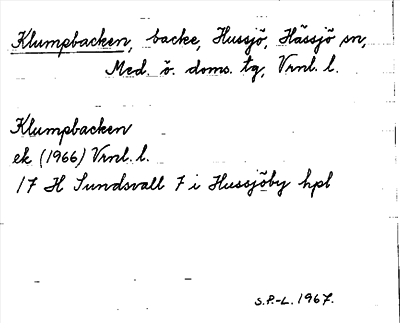 Klumpbacken, backe, Hussjö, Hässjö sn,
Med. ö. doms. tg, Vrnl. l.
Klumpbacken
ek (1966) Vrnl. l.
17 H Sundsvall 7 i Hussjöby hpl
S.P.-L. 1967.